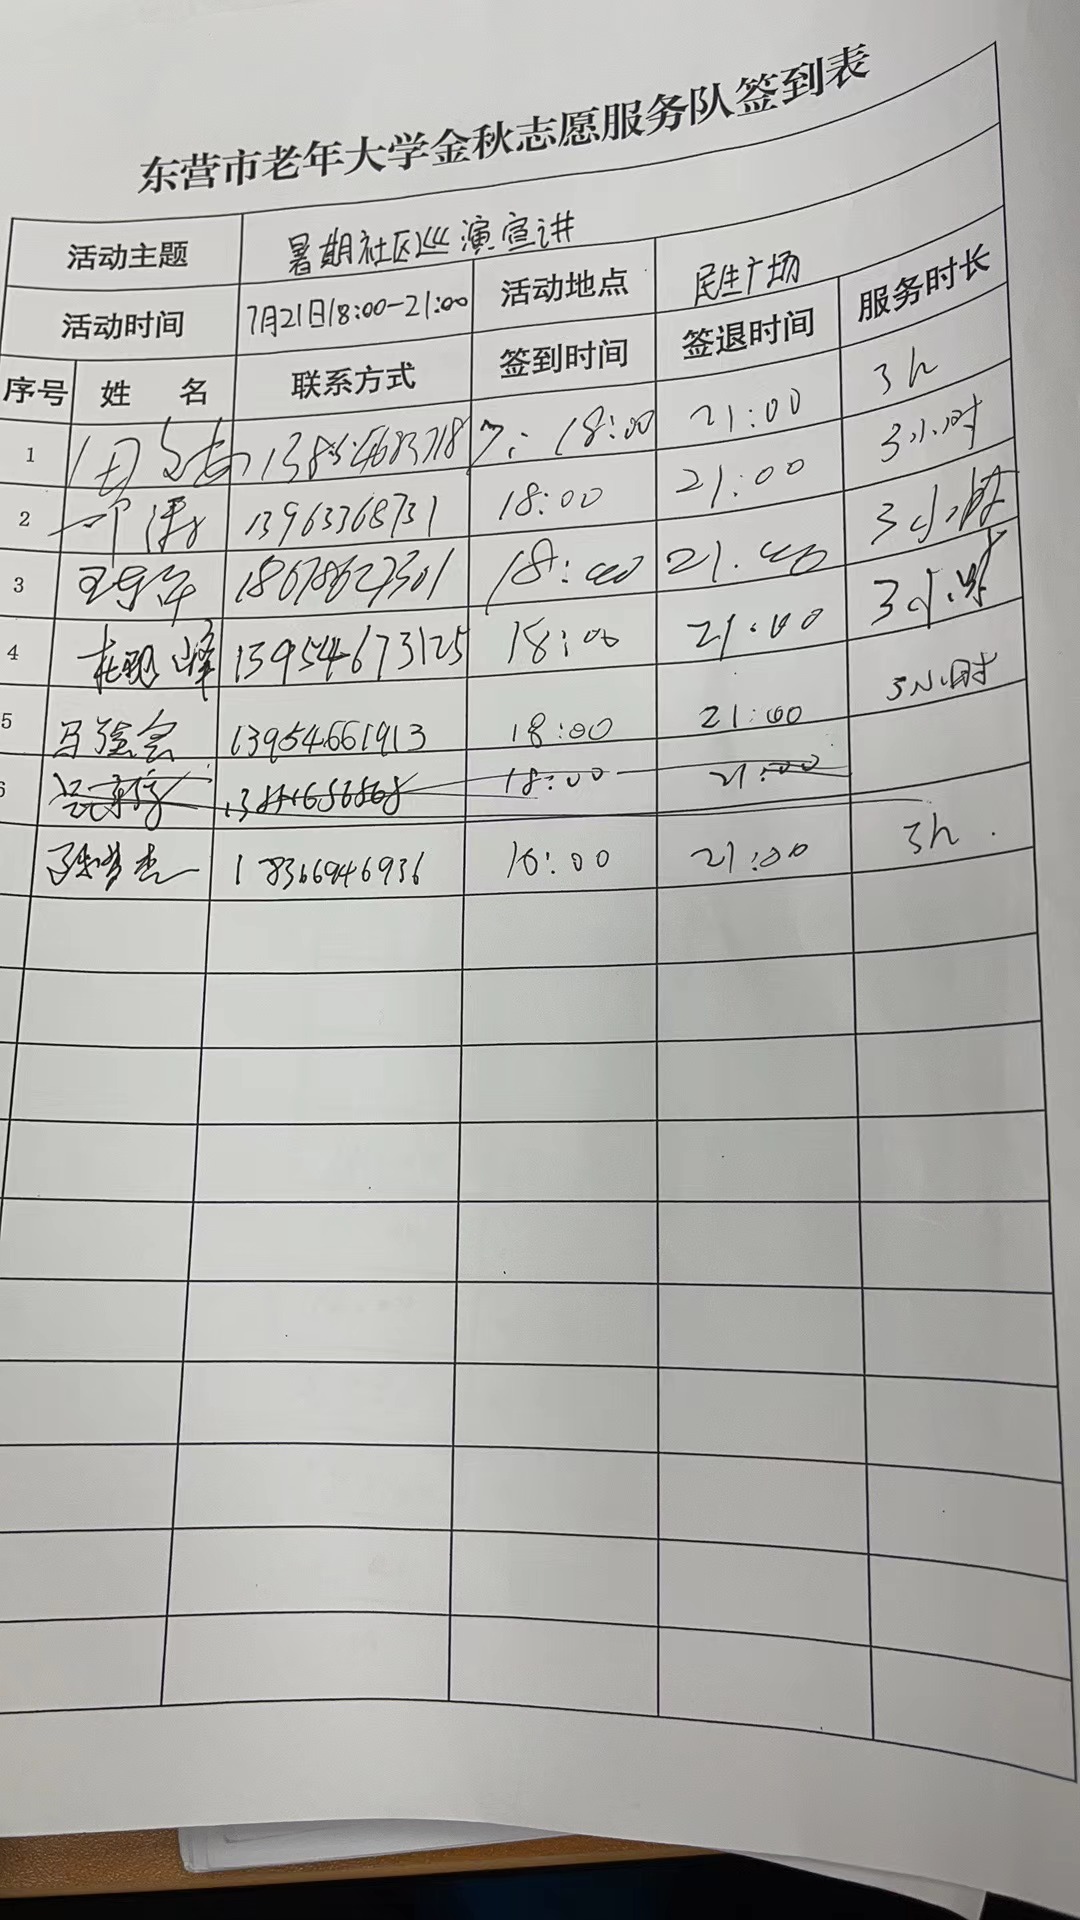 东营市老年大学金秋志愿服务队签到表
活动主题 暑期社区巡演宣讲
活动时间 7月21日18:00-21:00 活动地点 民生广场
序号 姓 名 联系方式 签到时间 签退时间 服务时长
1 18:00 21:00 3h
2 13963368731 18:00 21:00 3小时
3 18678627301 18:00 21:00 3小时
4 13954673125 18:00 21:00 3小时
5 13954661913 18:00 21:00 3小时
6 18:00 21:00
18366946936 18:00 21:00 3h